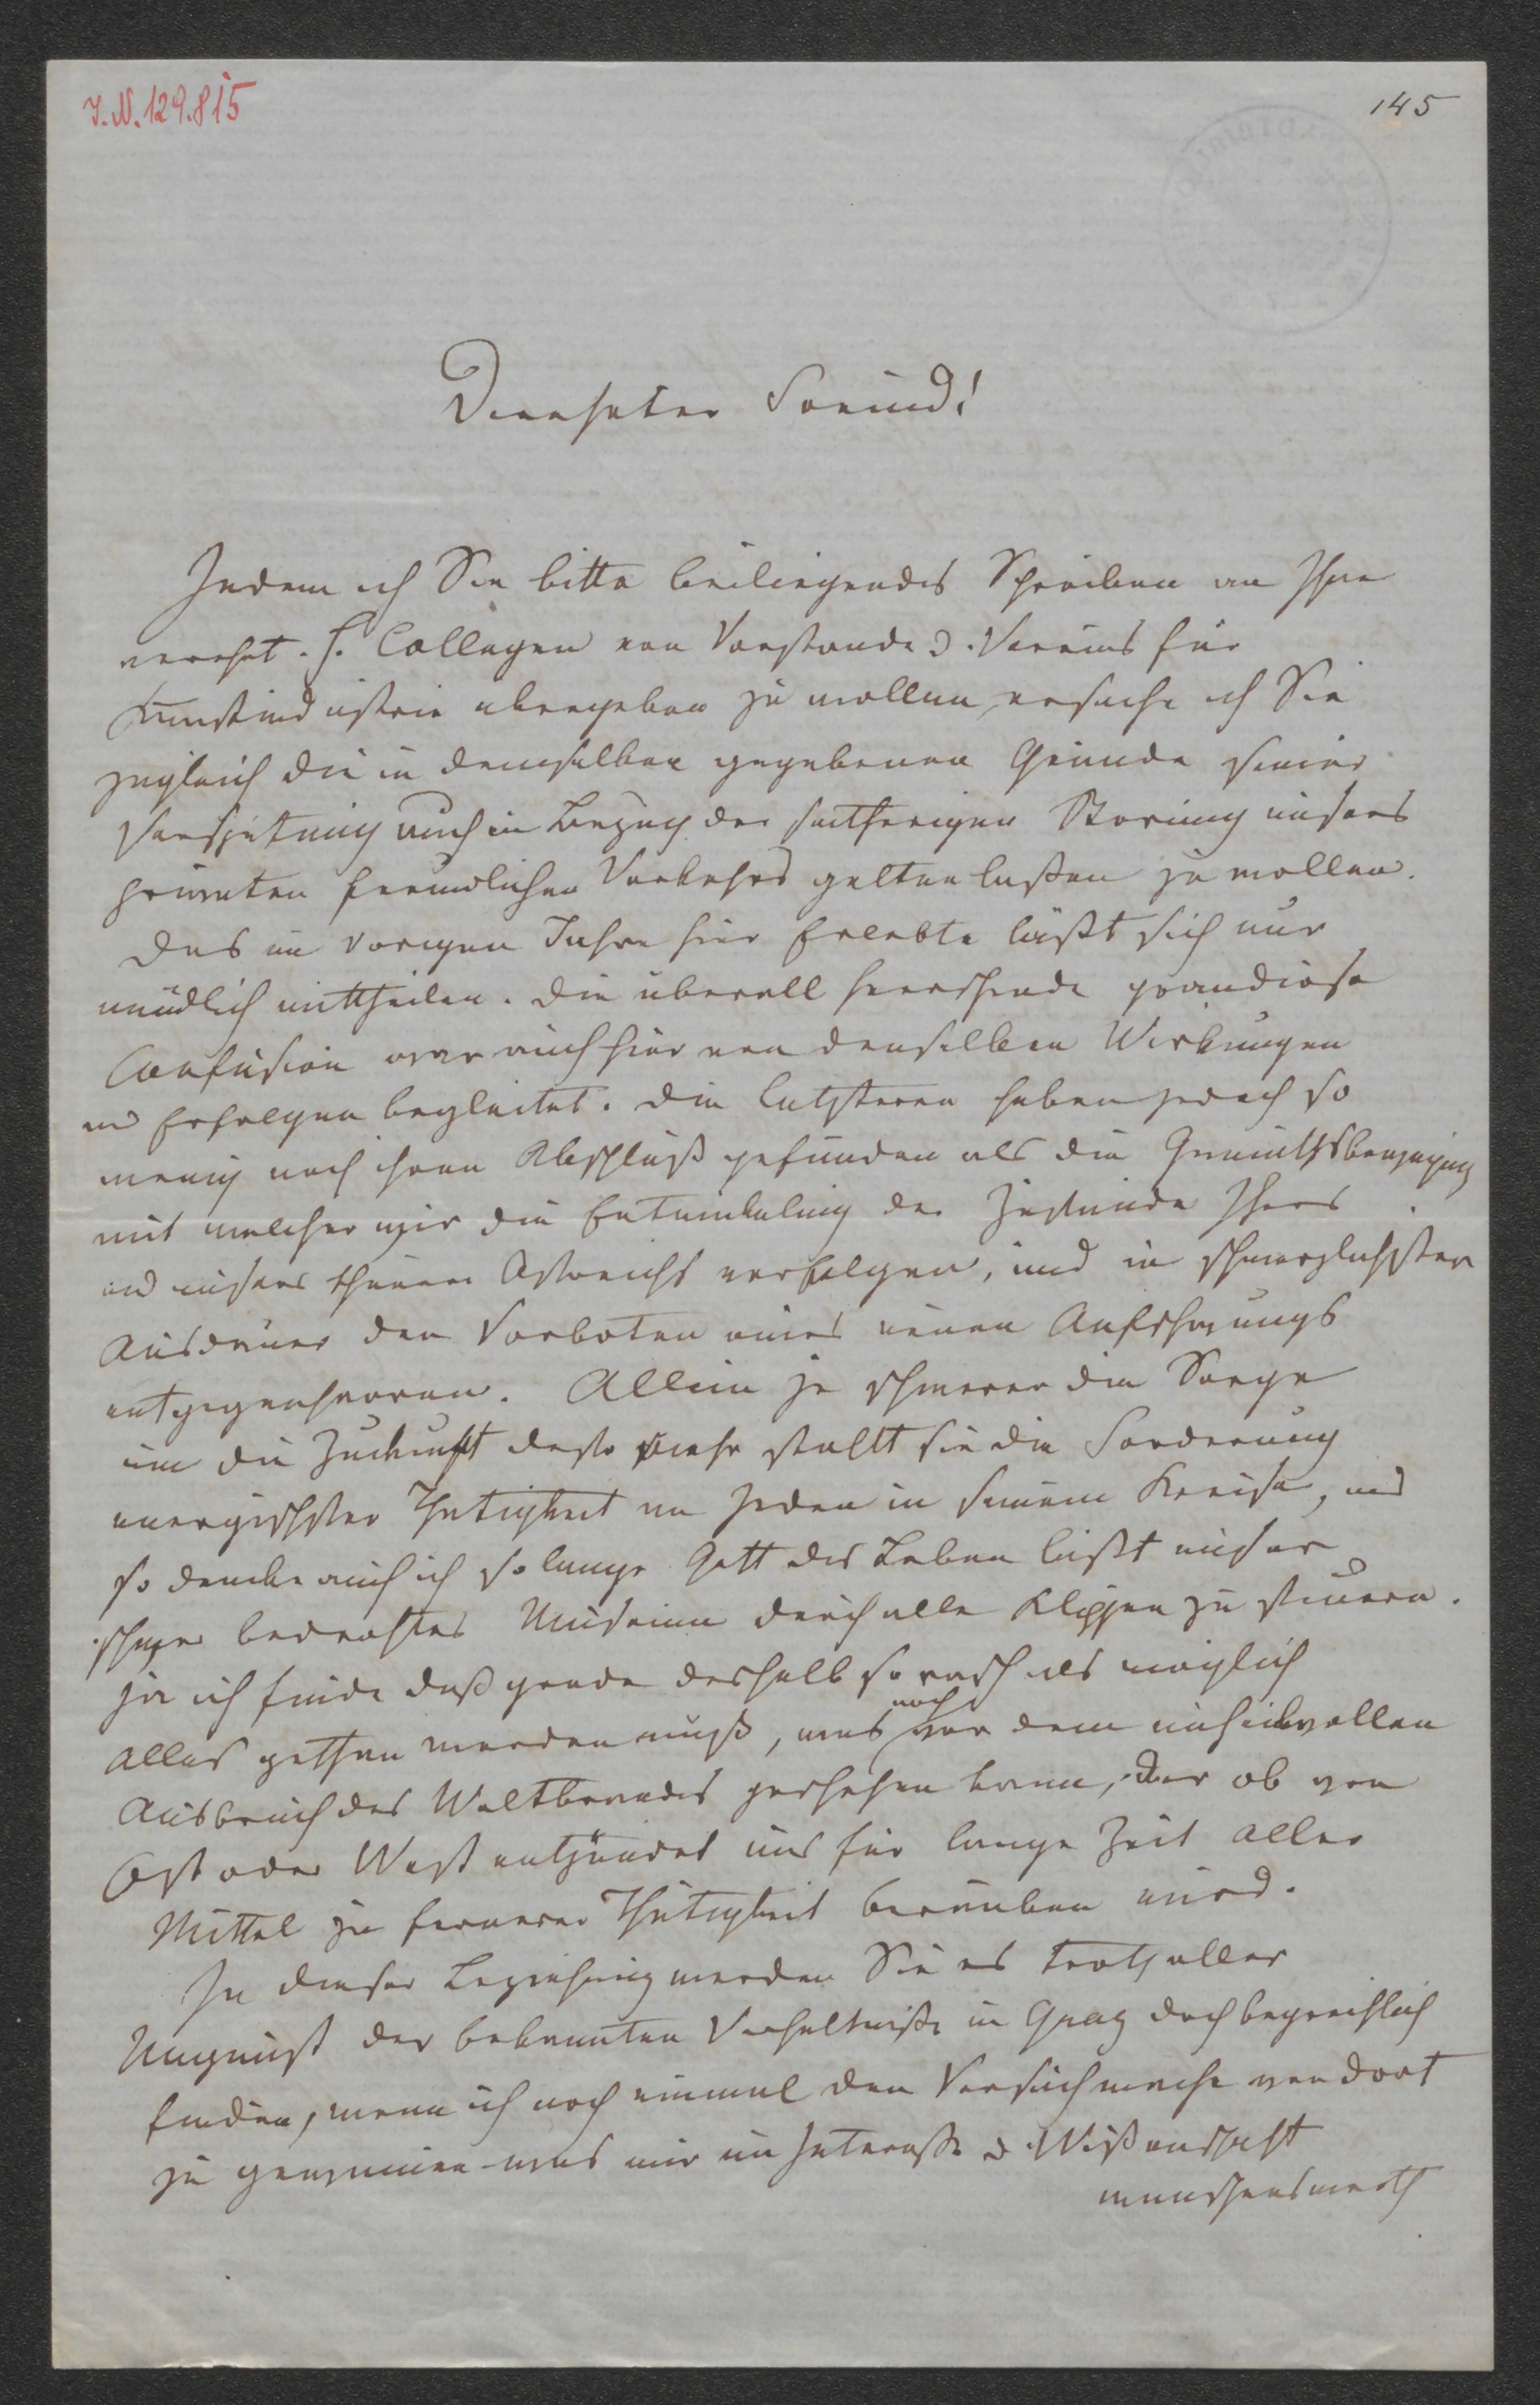 I. N. 129.815
145
Verehrter Freund!
Indem ich Sie bitte beiliegendes Schreiben an Ihre
verehrt. H. Collegen von Vorstande d. Vereins für
Kunstindustrie übergeben zu wollen, ersuche ich Sie
zugleich die in demselben gegebenen Gründe seiner
Verspätung auch in Bezug der seitherigen Störung unsers
privaten freundlichen Verkehrs gelten laßen zu wollen.
Das im vorigen Jahre hier Erlebte läßt sich nur
mündlich mittheilen. Die überall herrschende grandiose
Confusion war auch hier von denselben Wirkungen
und Erfolgen begleitet. Die letzteren haben jedoch so
wenig noch ihren Abschluß gefunden als die Gemüthsbewegung
mit welcher wir die Entwickelung der Zustände Ihres
und unsers theuern Östreichs verfolgen, und in schmerzlichster
Ausdauer den Vorboten eines neuen Aufschwungs
entgegenharren. Allein je schwerer die Sorge
um die Zuckunft desto mehr stellt sie die Forderung
energischster Thätigkeit an Jeden in seinem Kreise, und
so dencke auch ich so lange Gott das Leben läßt unser
schwer bedrohtes Museum durch alle Klippen zu steuern.
ja ich finde daß grade deshalb so rasch als möglich
alles gethan werden muß, was noch vor dem unheilvollen
Ausbruch des Weltbrandes geschehen kann, der ob von
Ost oder West entzündet uns für lange Zeit aller
Mittel zu fernerer Thätigkeit berauben wird.
In dieser Beziehung werden Sie es trotz aller
Ungunst der bekannten Verhältniße in Graz doch begreiflich
finden, wenn ich noch einmal den Versuch mache von dort
zu gewinnen was mir im Intereße d. Wißenschaft
wünschenswerth